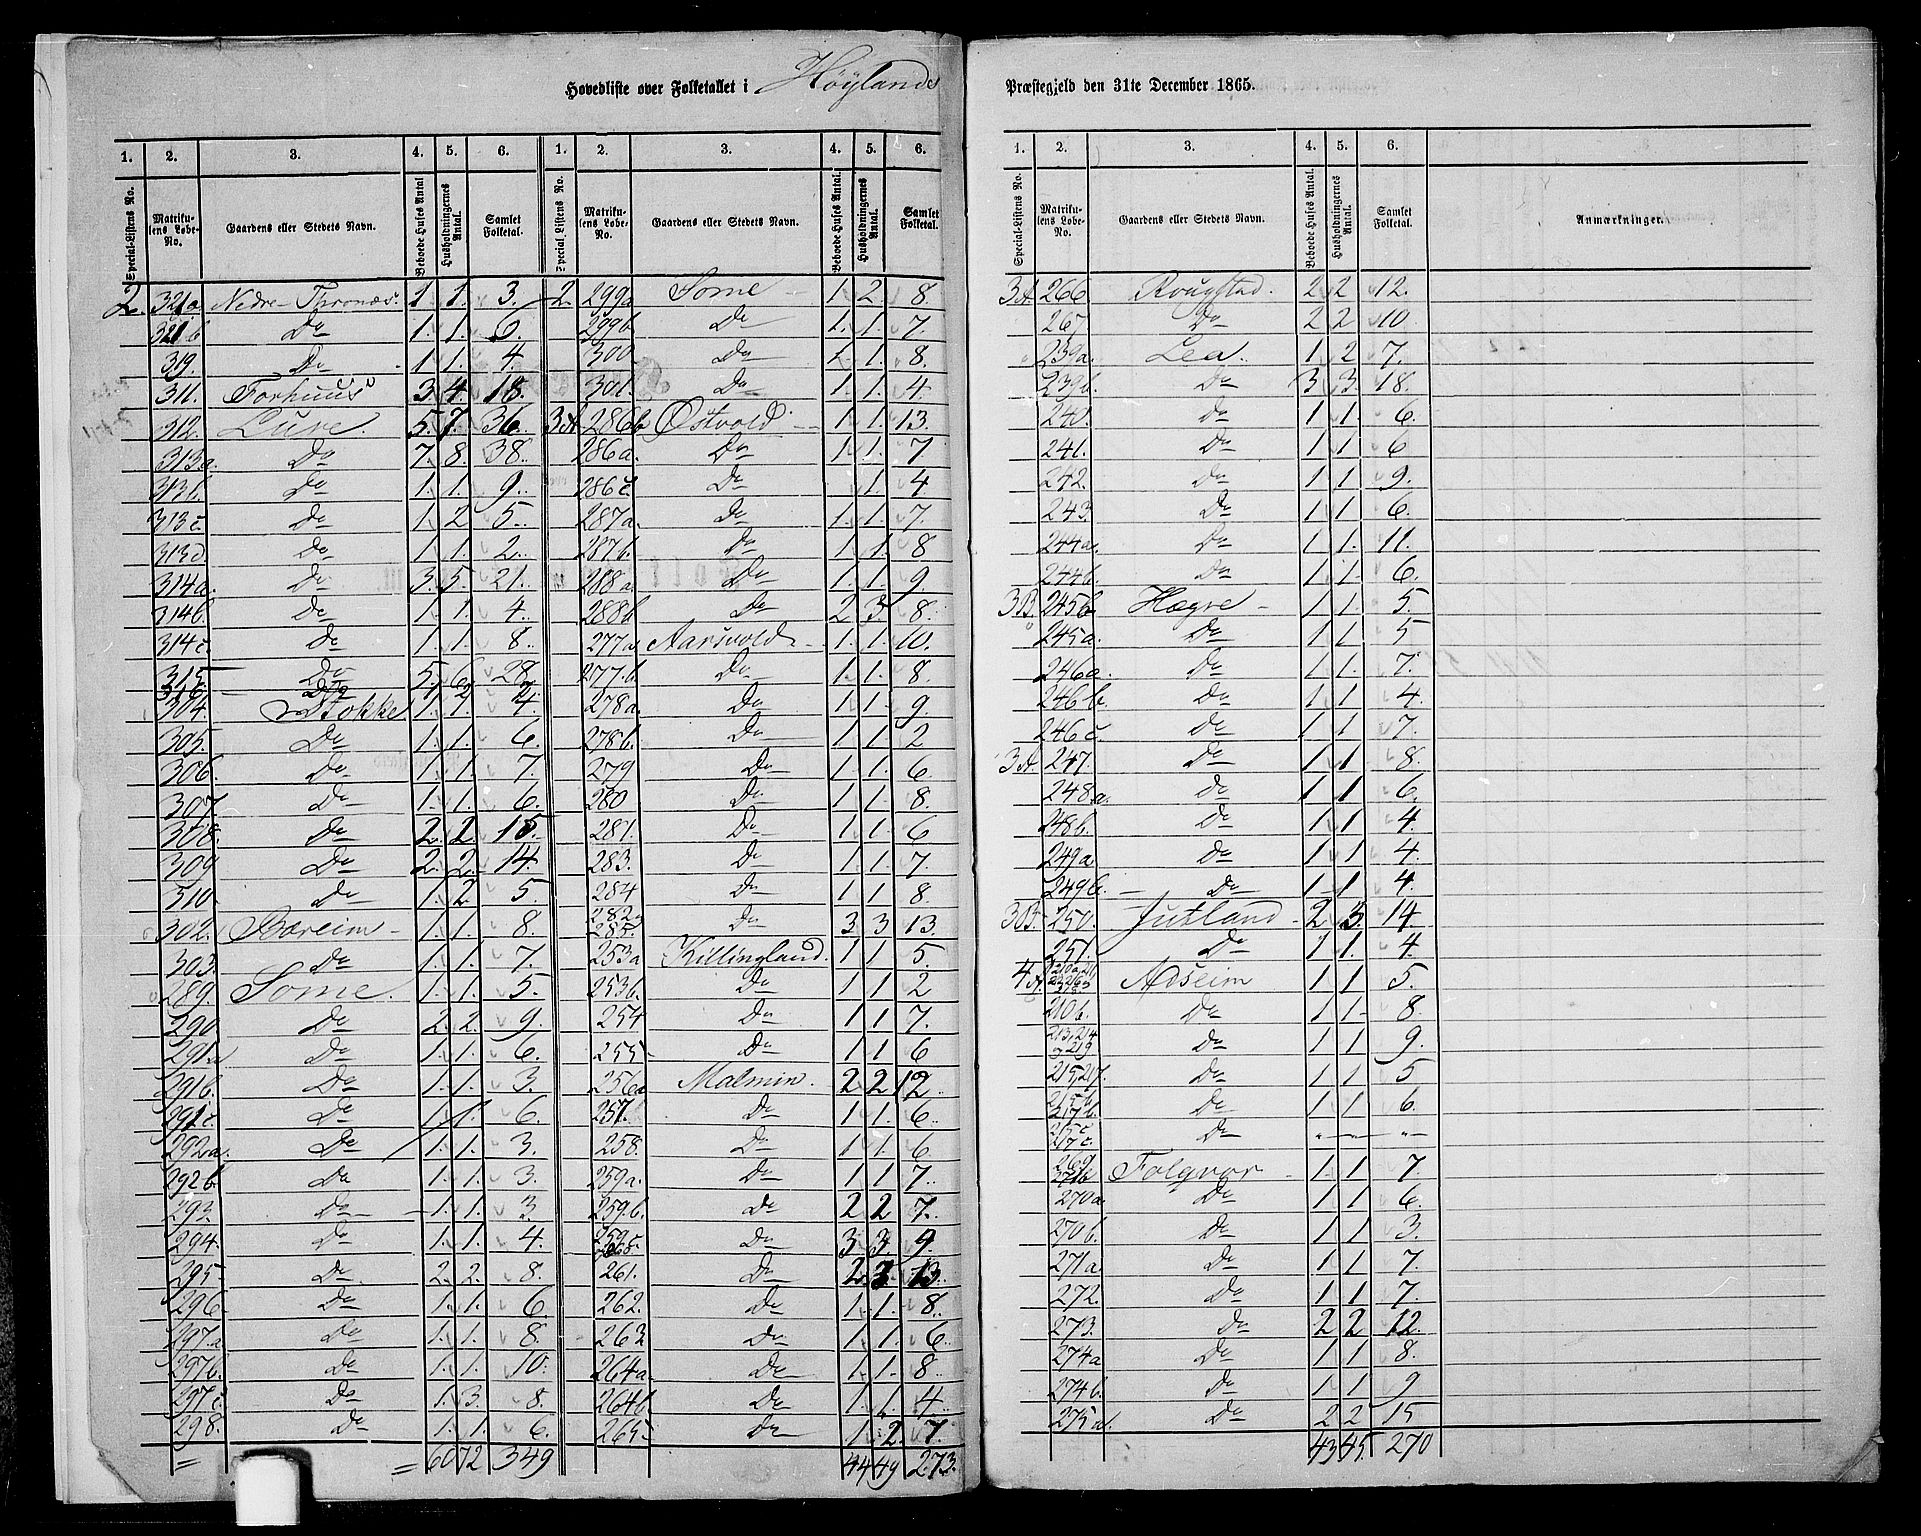 Hovedliste over Folketallet i Höylands
Præstegjeld den 31te December 1865.
1. 2. 3. 4. 5. 6. 1. 2. 3. 4. 5. 6.
Special-Listens No. Matrikulens Løbe-No. Gaardens eller Stedets Navn. Beboede Huses Antal Husholdningernes Antal. Samlet Folketal. Special Listens No. Matrikulens Løbe-No. Gaardens eller Stedets Navn. Beboede Huses Antal. Husholdningernes Antal. Samlet Folketal.
2. 321a Nedre-Thronæs. 1. 1. 3. 2. 299a Some 1. 2. 8.
321b Do 1. 1. 6. 299b Do 1. 1. 7.
319. Do 1 1. 4. 300 Do 1. 1. 8.
311. Forhuus 3 4. 18. 301. Do 1. 1. 4
312. Lure. 5. 7. 36. 3A. 286b Østvold 1. 1. 13.
313a. Do 7. 8. 38. 286a. Do 1. 1. 7
313b. Do 1. 1. 9. 286c. Do 1. 4.
313c. Do 1. 2 5. 287a. Do 1. 1. 7.
313d Do 1 1. 2. 287b. Do 1 1. 8
314a. Do 3. 5. 21. 288a. Do 1. 1. 9
314b. Do 1. 1. 4. 288b Do 2 3. 8.
314c. Do 1. 1. 8. 277a Aarsvold 1. 1. 10.
315 Do 5. 6 28 277.b Do 1. 1. 8.
316 Do 1 2
304. Stokke 1. 1. 4. 278a. Do 1 1. 9.
305. Do 1. 1. 6. 278b. Do 1 1 2
306. Do 1. 1 7. 279 Do 1 1. 6
307. Do 1. 1. 6. 280 Do 1 1. 8.
308. Do 2. 2 15. 281. Do 1 1. 6
309 Do 2. 2. 14. 283. Do 1 1. 7.
310 Do 1. 2 5. 284 Do 1 1 8.
302. Bareim 1. 1. 8. 282 285. Do 3 3 13.
303. Do 1. 1. 7. 253a Killingland. 1 1 5.
289. Some. 1. 1. 5. 253b. Do 1 1 2
290 Do 2. 2. 9. 254 Do 1 1 7.
291.a Do 1. 1. 6. 255 Do 1 1 6
291b. Do 1. 1. 3. 256a Malmin. 2 2 12
291c. Do 1 1. 6. 257. Do 1 1. 6.
292a. Do 1. 1. 3. 258. Do 1 1. 6
292b. Do 1. 1. 3. 259a. Do 1 1 7.
293. Do 1. 1. 3. 259.b. Do 2 2 7.
294. Do 1. 1. 4. Do 3 3. 9.
295 Do 2. 2. 8. 261. Do 2. 3. 13.
296 Do 1. 1. 6. 262. Do 1. 1. 8.
297.a Do 1. 1. 8. 263 Do 1. 1. 6.
297b. Do 1. 1. 10. 264a. Do 1. 1. 8
297c. Do 1. 3. 8. 264b Do 1. 1. 4.
298. Do 1. 1. 6. 265 Do 1 2. 7.
= = 60 72 349 44 49 273.
1. 2. 3. 4. 5. 6.
Special-Listens No. Matrikulens Løbe-No. Gaardens eller Stedets Navn. Beboede Huses Antal. Husholdningernes Antal. Samlet Folketal. Anmærkninger.
3A. 266 Rougstad. 2 2 12.
267 Do 2 2 10.
239a. Lea. 1 2 7.
239b. Do 3 3. 18.
240. Do 1 1. 6.
241. Do 1 1. 6
242. Do 1 1. 9.
243. Do 1 1. 6.
244a. Do 1 1. 11.
244b. Do 1 1. 6.
3B. 245b Høgre 1 1. 5.
245a. Do 1 1. 5
246a. Do 1 1. 7.
246b. Do 1 1. 4.
246c. Do 1 1. 7.
3A. 247. Do 1 1 8.
248.a. Do 1 1 6.
248b. Do 1 1 4.
249a Do 1 1 4.
249b. Do 1 1 4.
3B. 250. Jutland 2 3. 14.
251. Do 1 1. 4.
4A. Aseim 1 1 5.
210b. Do 1 1 8.
213, 214 219 Do 1 1 9.
215, 217. Do 1 1 5
215b 217b. Do 1 1 6.
215c 217c. Do " " "
269 Folgvor 1 1 7.
270a. Do 1 1 6.
270b. Do 1 1 3.
271a Do 1 1 7.
272. Do 1 1 7.
273. Do 2 2 12.
274a Do 1 1 8.
274b. Do 1 1 9
275a. Do 2 2 15
43 45. 270